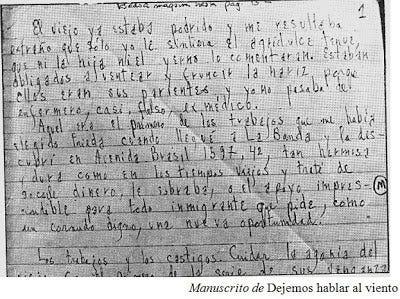 1
El viejo ya estaba podrido y me resultaba
extraño que solo yo le sintiera el agridulce tenue,
que ni la hija ni el yerno lo comentaran. Estaban
obligados a ventear y fruncir la nariz porque
ellos eran sus parientes y yo no pasaba de
enfermero, casi, falso ex médico.
Aquel era el primero de los trabajos que me había
elegido Frieda cuando llegué a La Banda y la des-
cubrí en Avenida Brasil 1597, 42, tan hermosa
y dura como en los tiempos viejos y traté de
sacarle dinero, le sobraba, o el apoyo impres-
cindible para todo inmigrante que pide, como
un corrando digno, una nueva oportunidad.
M
Los trabajos y los castigos. Cuidar la agonía del
Manuscrito de Dejemos hablar al viento